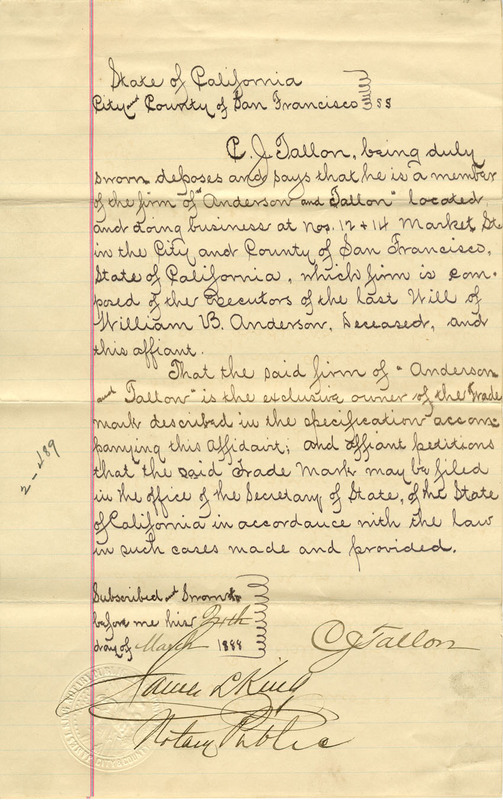 State of California
City and County of San Francisco SS
C. J. Tallon, being duly
sworn deposes and says that he is a member
of the firm of "Anderson and Tallon" located
and doing business at Nos. 12 + 14 Market St.
in the City and County of San Francisco,
State of California, which firm is com-
posed of the Executors of the last Will of
William B. Anderson, deceased, and
this affiant.
That the said firm of "Anderson
and Tallon" is the exclusive owner of the trade
mark described in the specification accom-
panying this Affidavit; and affiant petitions
that the said Trade Mark may be filed
in the office of the Secretary of State, of the State
of California in accordance with the law
in such cases made and provided.
2-189
Subscribed and Sworn to
before me this
day of March 1888
C J Tallon
James L King
Notary Public